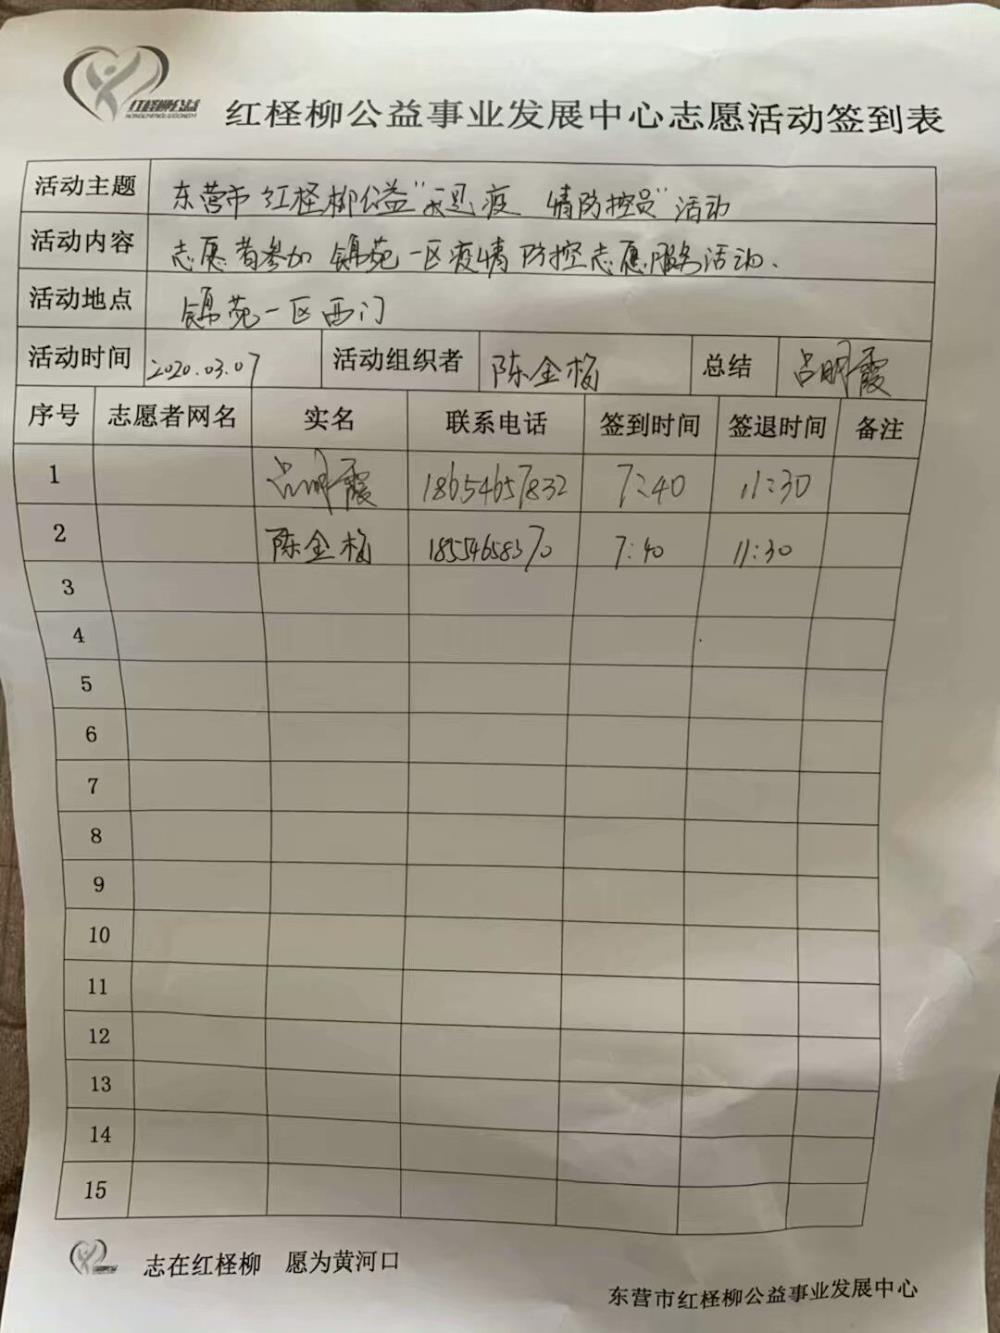 红柽柳公益
红柽柳公益事业发展中心志愿活动签到表
活动主题 东营市红柽柳公益" 疫 情防控员"活动
活动内容 志愿者参加锦苑一区疫情防控志愿服务活动.
活动地点 锦苑一区西门
活动时间 2020.03.07 活动组织者 陈金梅 总结 吕明霞
序号 志愿者网名 实名 联系电话 签到时间 签退时间 备注
1 吕明霞 18654657832 7:40 11:30
2 陈金梅 18554658370 7:40 11:30
3
4
5
6
7
8
9
10
11
12
13
14
15
志在红柽柳 愿为黄河口
东营市红柽柳公益事业发展中心